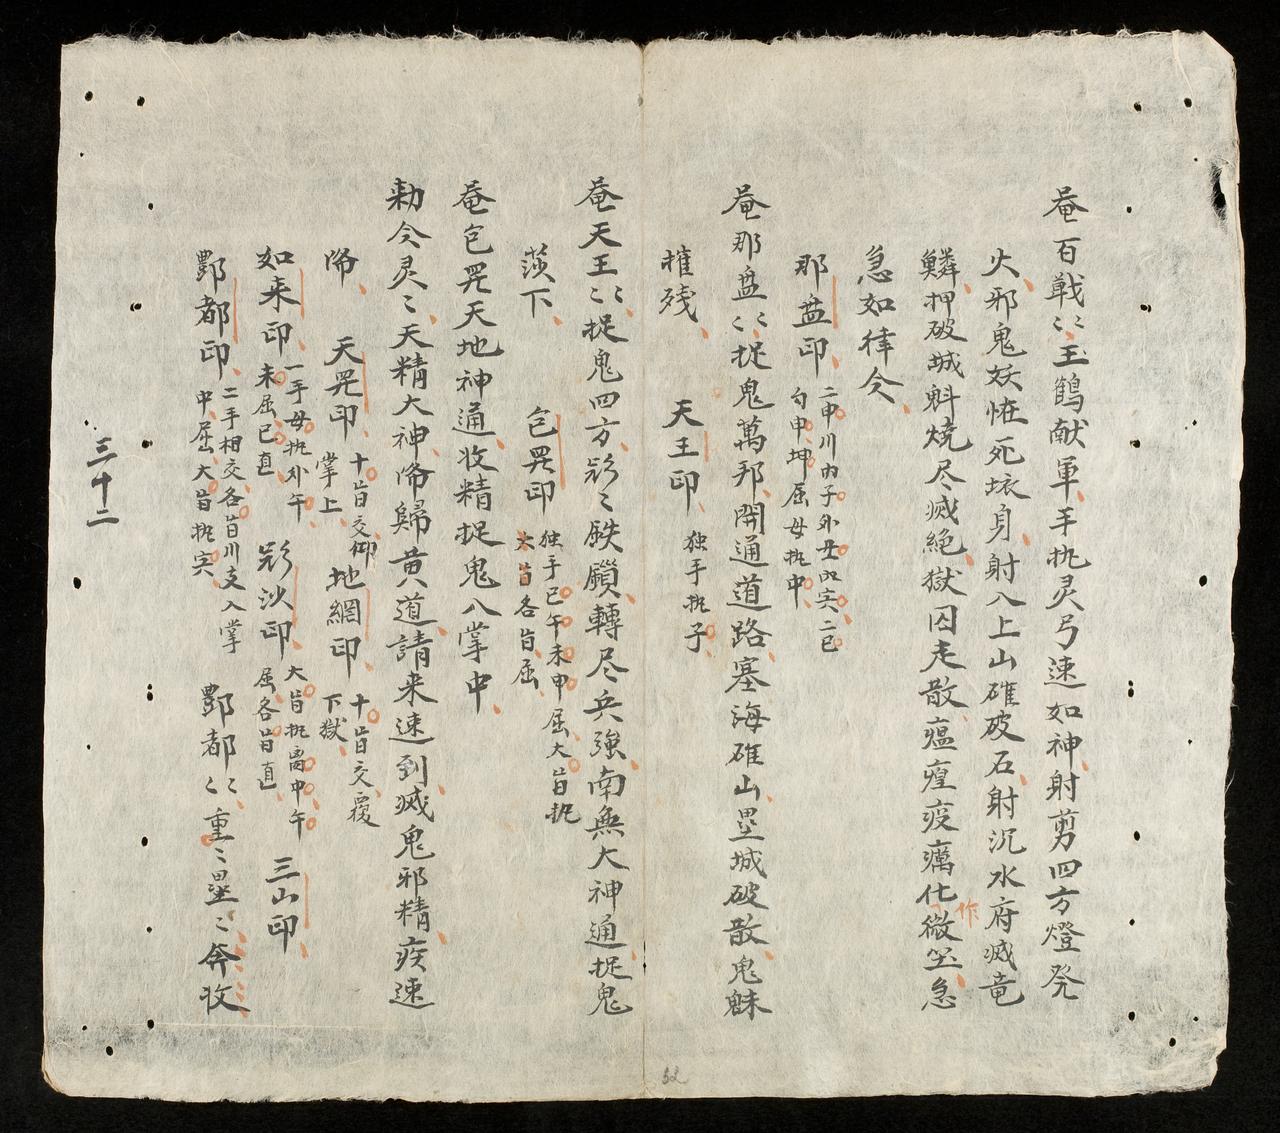 奄百戦〻王鶴献軍手执灵弓速如神射剪四方燈発
火邪鬼妖怪死坏身射入上山碓破石射沉水府滅竜
鱗押破城斛燒尽滅絶獄囚走散瘟㾮疫癘化微尘急
作
急如律令
那盎印
二申川内子外母丑寅二巳
勾申坤屈母执中
奄那盎〻捉鬼萬邦開通道路塞海碓山壘城破散鬼魅
摧残
天王印
独手执子
奄天王〻捉鬼四方〻鉄鎻轉尽兵強南無大神通捉鬼
下
包罡印
独手巳午未申屈大旨执
大旨各旨屈
奄包罡天地神通收精捉鬼入掌中
勅令灵〻天精大神降歸黄道請来速到滅鬼邪精疾速
降
天罡印
十旨交仰
掌上
地網印
十旨交覆
下獄
如来印
一手母执外午
未屈巳直
沙印
大旨执离中午
屈各旨直
三山印
酆都印
二手相交各旨川支入掌
中屈大旨执寅
酆都〻重〻壘〻奔收
三十二
32